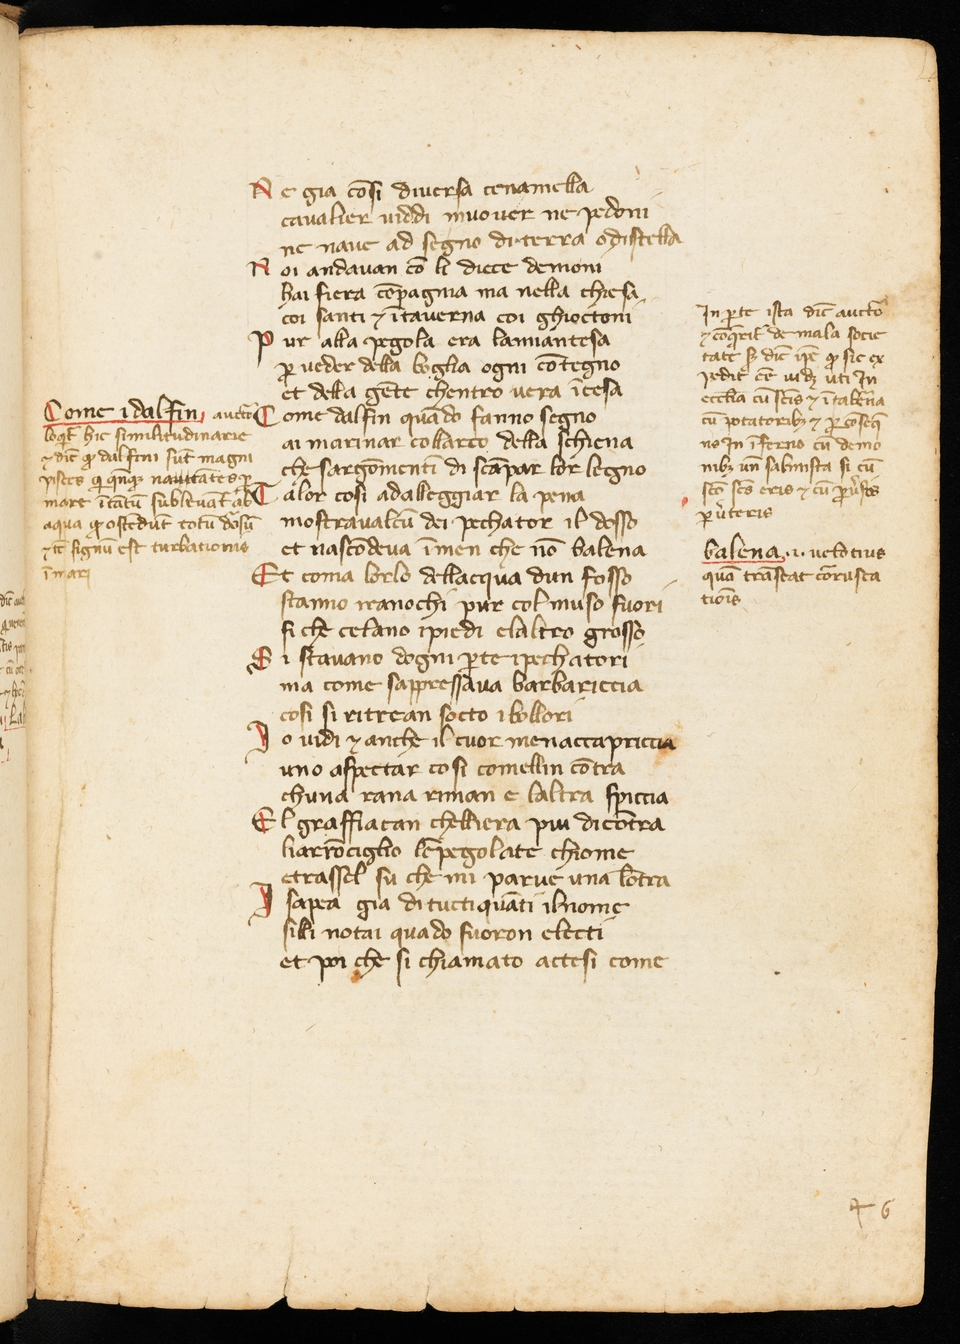 Ne gia cōsi diversa cenamella
cavalier viddi muover ne pedoni
ne nave ad segno di terra o distella
Noi andavan cō li diece demoni
hai fiera cōpagnia ma nella chiesa
coi santi ⁊ ī taverna coi ghioctoni
Pur alla pegola era lamiantesa
ꝑ veder della boglia ogni cōtegno
et della gēte chentro vera īcesa
Come dalfin quādo fanno segno
ai marinar collarco della schiena
che sargomentī di scāpar lor legno
Talor cosi ad alleggiar la pena
mostravalcū dei pechator il dosso
et nascōdeva ī men che nō balena
Et coma lorlo dellacqua dun fosso
stanno ranochi pur col muso fuori
si che celano i piedi e laltro grosso
Si stavano dogni ꝑte i pechatori
ma come sappressava barbariccia
cosi si ritrean socto i bollori
Io vidi ⁊ anche il cuor men accapriccia
uno aspectar cosi comellin cōtra
chuna rana riman e laltra spiccia
El graffiacan chelliera piu dicōtra
li arrōciglio lēpegolate chiome
e trassel su che mi parve una lōtra
I sapea gia di tucti quāti il nome
silli notai quādo fuoron electi
et poi che si chiamato actesi come
Come i dalfin, auctō
loq̄t hic similitudinarie
⁊ dic̄ ꝙ dalfini sūt magni
pisces
mare ītātū sublevāt ab
aqua ꝙ ostēdūt totū dorsū
⁊ īc signū est turbationis
ī mari
In ꝑte ista dic̄ auctō
⁊ cōq̄rit̄ de mala socie
tate
eccl̄ia cū scīs ⁊ ī tabn̄a
cū potatoribꝫ ⁊ ꝑ cōseq̄
ns In īferno cū demo
nibꝫ un̄ salmista si cū
scō scs eris ⁊ cū ꝑv̄so
ꝑv̄teris
balena .i. velotius
quā trāseat corusca
tiois
46